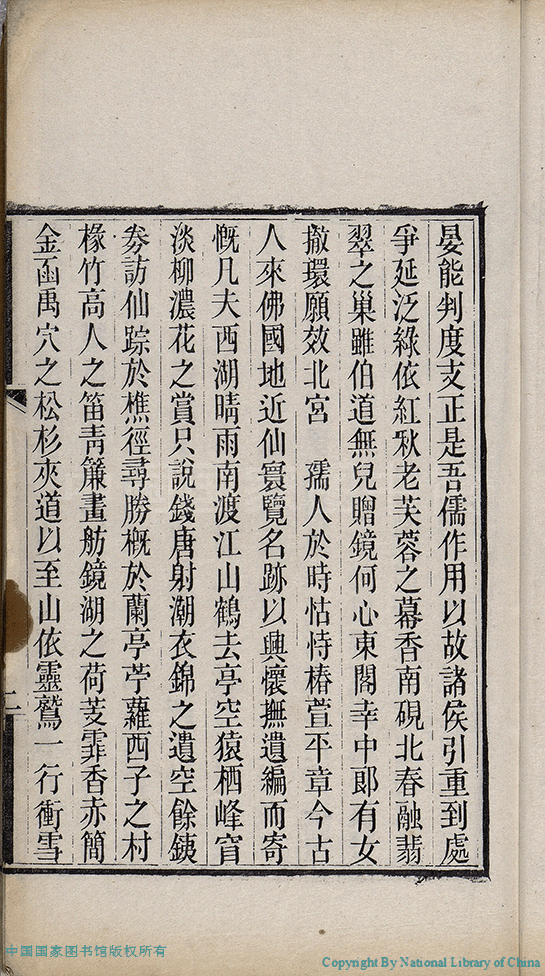 晏能判度支正是吾儒作用以故諸侯引重到處
爭延泛綠依紅秋老芙蓉之幕香南硯北春融翡
翠之巢雖伯道無兒贈鏡何心東閣幸中郎有女
撤環願效北宮　孺人於時怙恃椿萱平章今古
人來佛國地近仙寰覽名跡以興懷撫遺編而寄
慨凡夫西湖晴雨南渡江山鶴去亭空猿栖峰窅
淡柳濃花之賞只說錢唐射潮衣錦之遺空餘鐵
劵訪仙踪於樵徑尋勝槪於蘭亭苧蘿西子之村
椽竹高人之笛靑簾畫舫鏡湖之荷芰霏香赤簡
金函禹穴之松杉夾道以至山依靈鷲一行衝雪
二
中国国家图书馆版权所有
Copyright By National Library of China